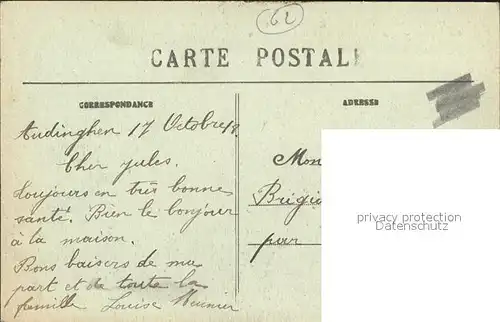 62
CARTE POSTALE
CORRESPONDANCE
ADRESSE
Audinghen 17 Octobre 18
Cher jules.
Toujours en très bonne
santé. Bien le bonjour
à la maison.
Bons baisers de ma
part et de toute la
famille Louise Meunier
Mon
Brégi
par
privacy protection
Datenschutz